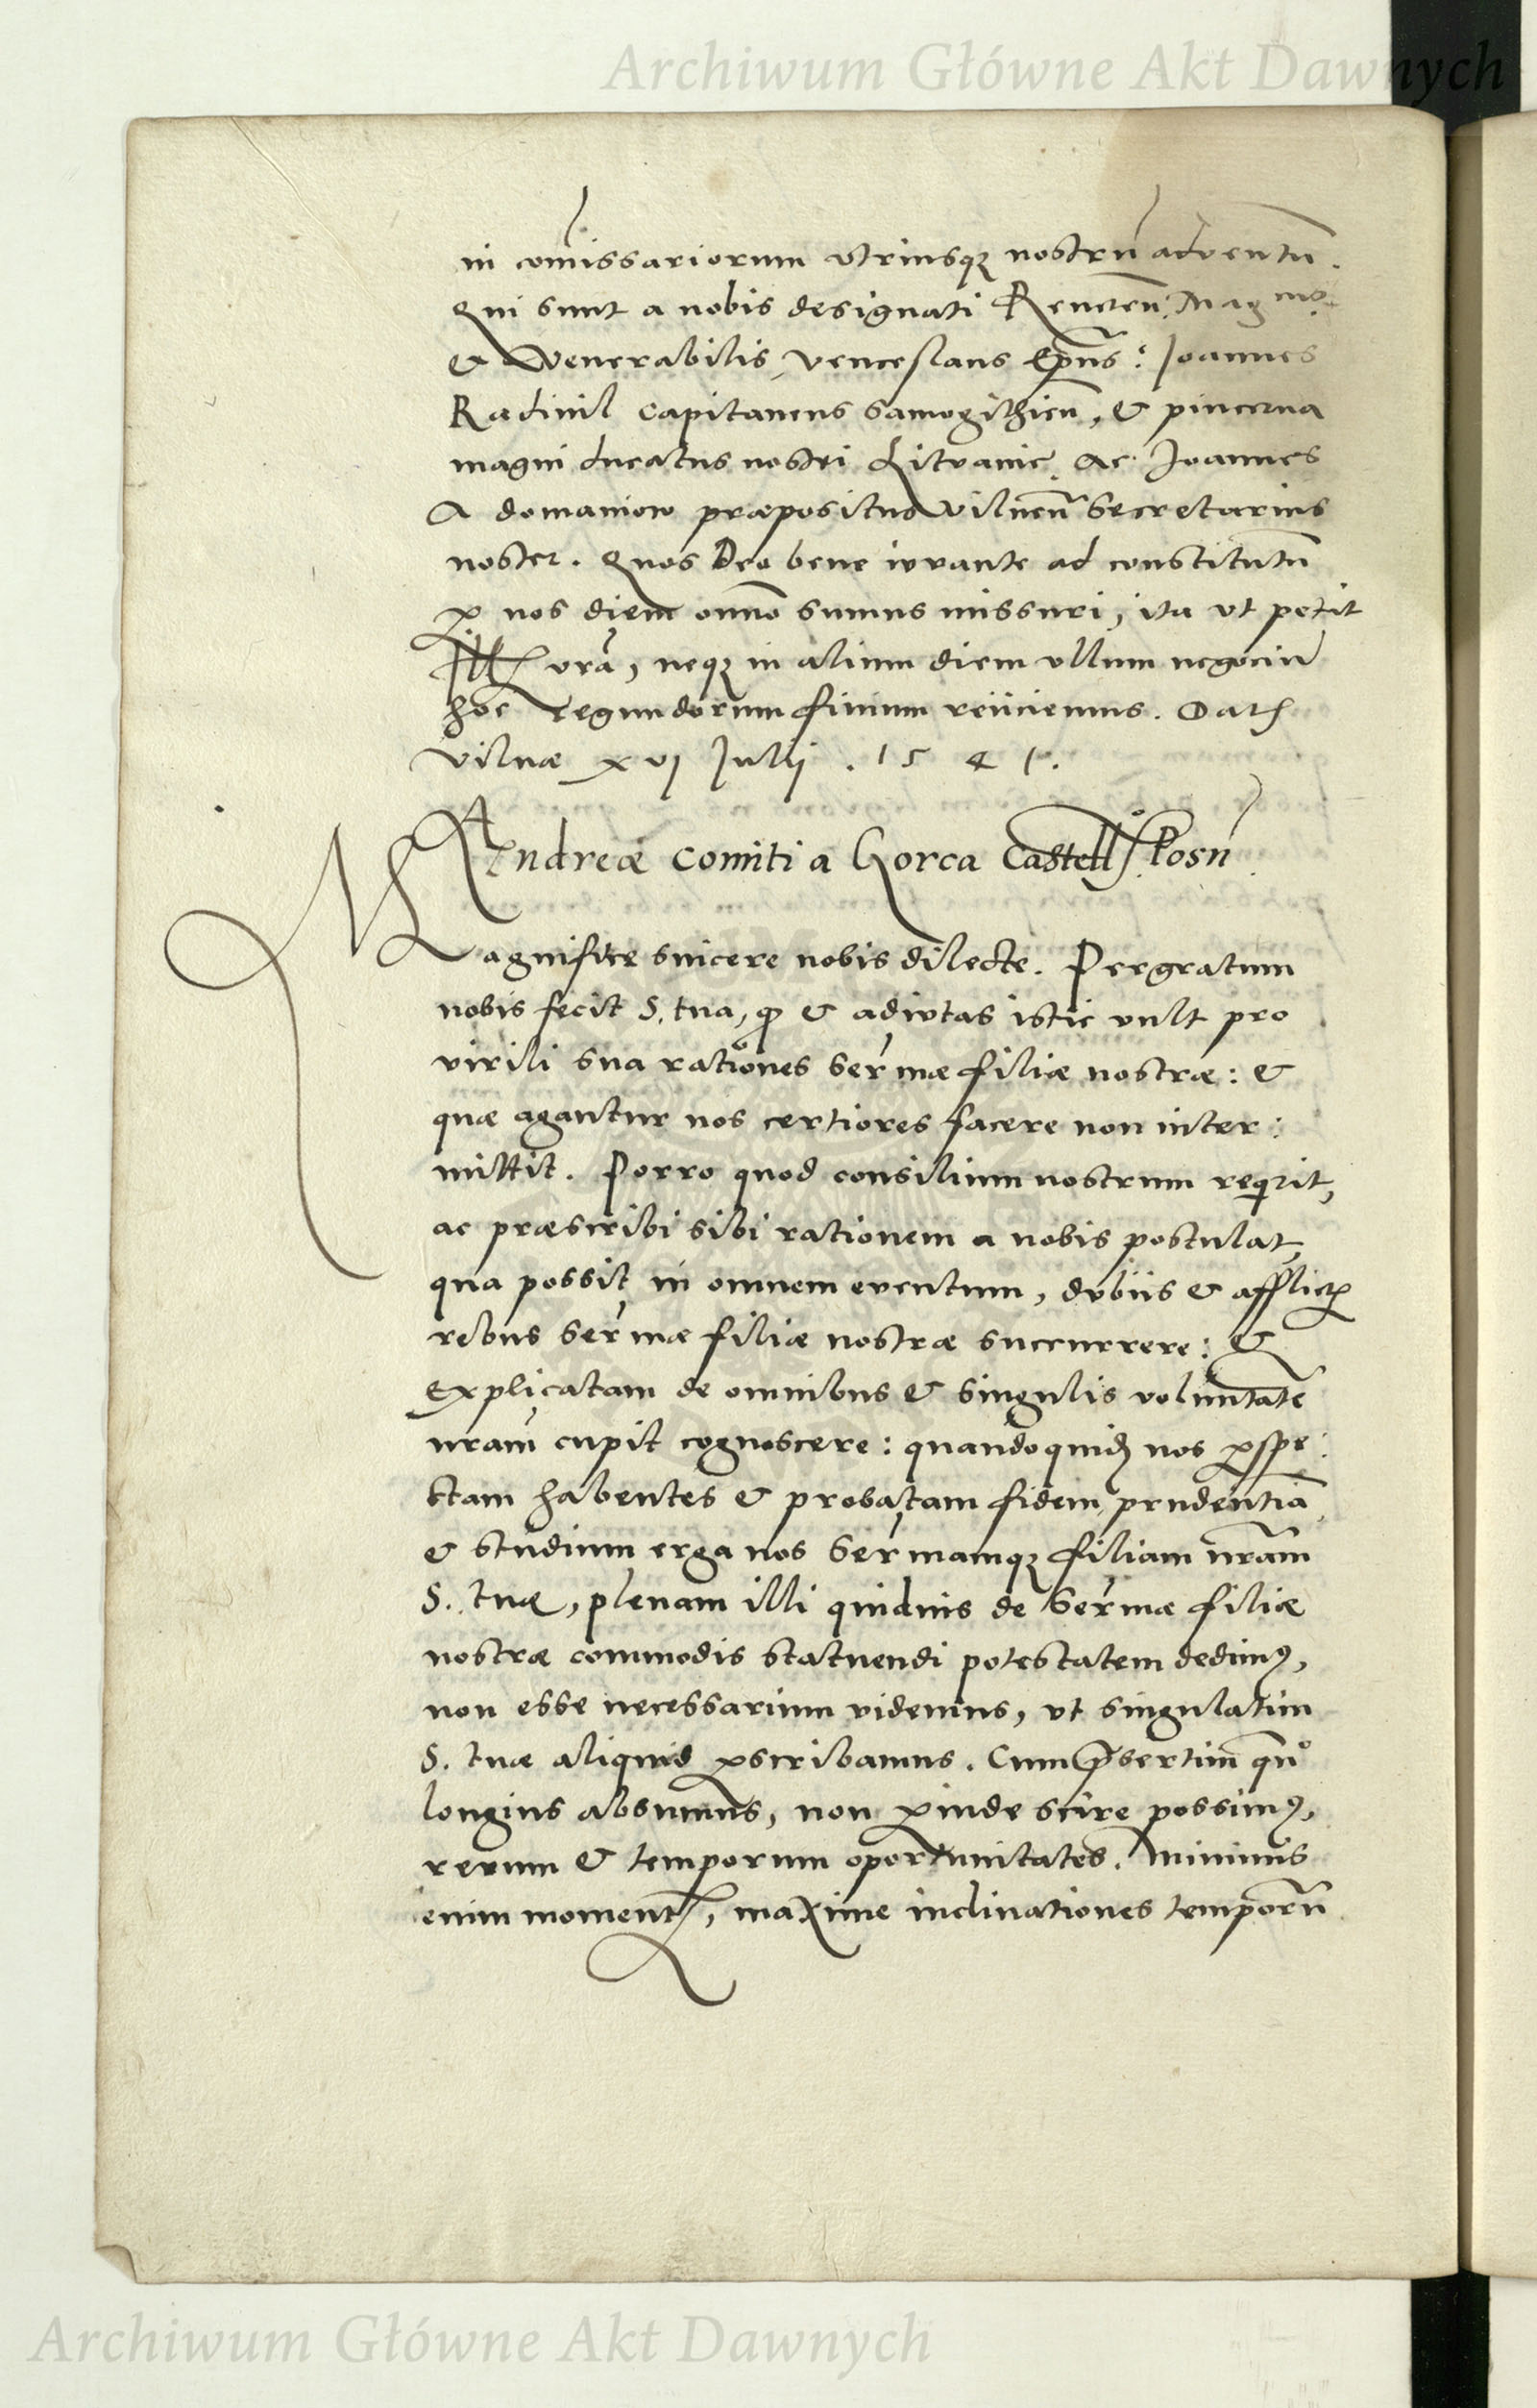 Archiwum Główne Akt Dawnych
in com̃issariorum vtriusq; nostrũ aduentũ.
Qui sunt a nobis designati Reueren: Mag
& Venerabilis, Venceslaus Ep̃us: Joannes
Radiuil Capitaneus Samogithieñ, & pincerna
magni ducatus nostri Lituanię. Ac Joannes
A domaniow præpositus Vilneñ Secretarius
noster. Quos Deo bene iuuante ad constitutũ
ꝑ nos diem om̃o sumus missuri, ita vt petit
Illꝭ vrã, neq; in alium diem ullum negociũ
hoc regundorum finium reijciemus. Datꝭ
Vilnæ xvj Julij . 1541.
Andreæ Comiti a Gorca Castellꝭ. Posñ.
Magnifice sincere nobis dilecte. Pergratum
nobis fecit S. tua, ꝙ & adiutas istic vult pro
virili sua rationes Serm̃æ filiæ nostræ: &
quæ agantur nos certiores facere non inter:
mittit. Porro quod consilium nostrum reqrit,
ac præscribi sibi rationem a nobis postulat,
qua possit in omnem euentum, dubiis & afflictꝭ
rebus Serm̃æ filiæ nostræ succurrere: &
Explicatam de omnibus & singulis voluntatẽ
nram̃ cupit cognoscere: quandoquidẽ nos ꝑspe:
ctam habentes & probatam fidem, prudentiã
& studium erga nos Serm̃amq; filiam nrãm
S. tuæ, plenam illi quiduis de Serm̃æ filiæ
nostræ commodis statuendi potestatem dedimꝰ,
non esse necessarium videmus, vt singulatim
S. tuæ aliquid ꝑscribamus. Cum p̃sertim qñ
longius absumus, non ꝑinde scire possimꝰ,
rerum & temporum oportunitates. Minimis
enim momentꝭ, maxime inclinationes temporũ
Archiwum Główne Akt Dawnych